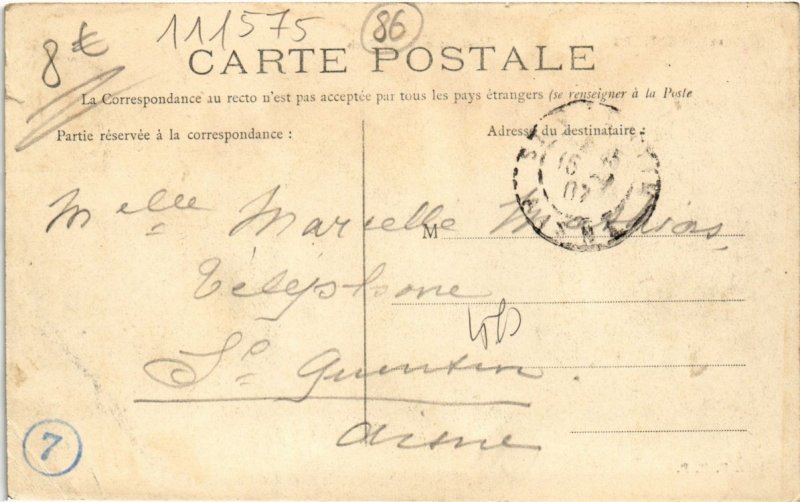 8€ 111575 86
CARTE POSTALE
La Correspondance au recto n'est pas acceptée par tous les pays étrangers (se renseigner à la Poste
Partie réservée à la correspondance :
Adresse du destinataire :
16
07
AISNE
M
Melle Marcelle
Téléphone
St Quentin
Aisne
7